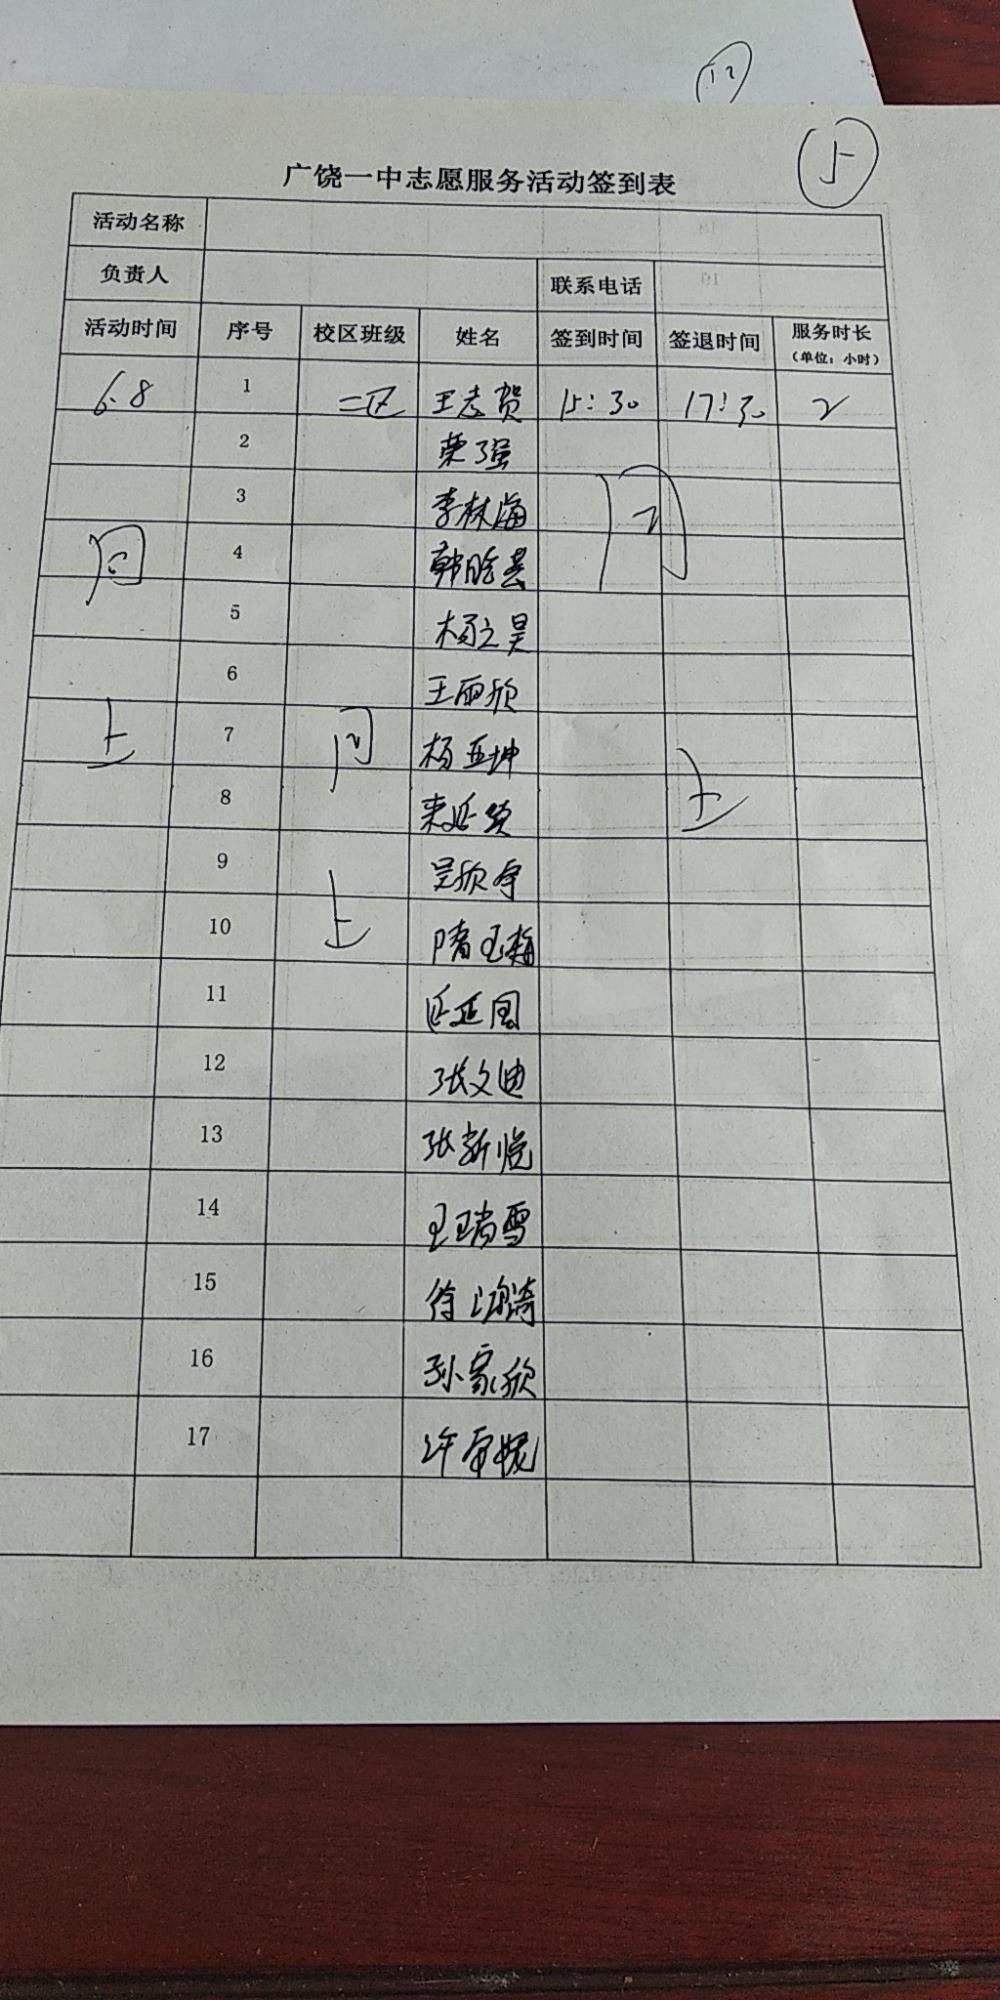 12
5
广饶一中志愿服务活动签到表
活动名称
负责人 联系电话
活动时间 序号 校区班级 姓名 签到时间 签退时间 服务时长（单位：小时）
6.8 1 二区 王志贺 15:30 17:30 2
2 荣子强
3 李林海
同 4 韩晗芸 同
5 杨之昊
6 王丽欣
上 7 同 杨亚坤 上
8
9 吴欣宇
10 上 隋玉梅
11 延国
12 张文迪
13 张新悦
14 王瑞雪
15 徐 琦
16 孙家欣
17 许